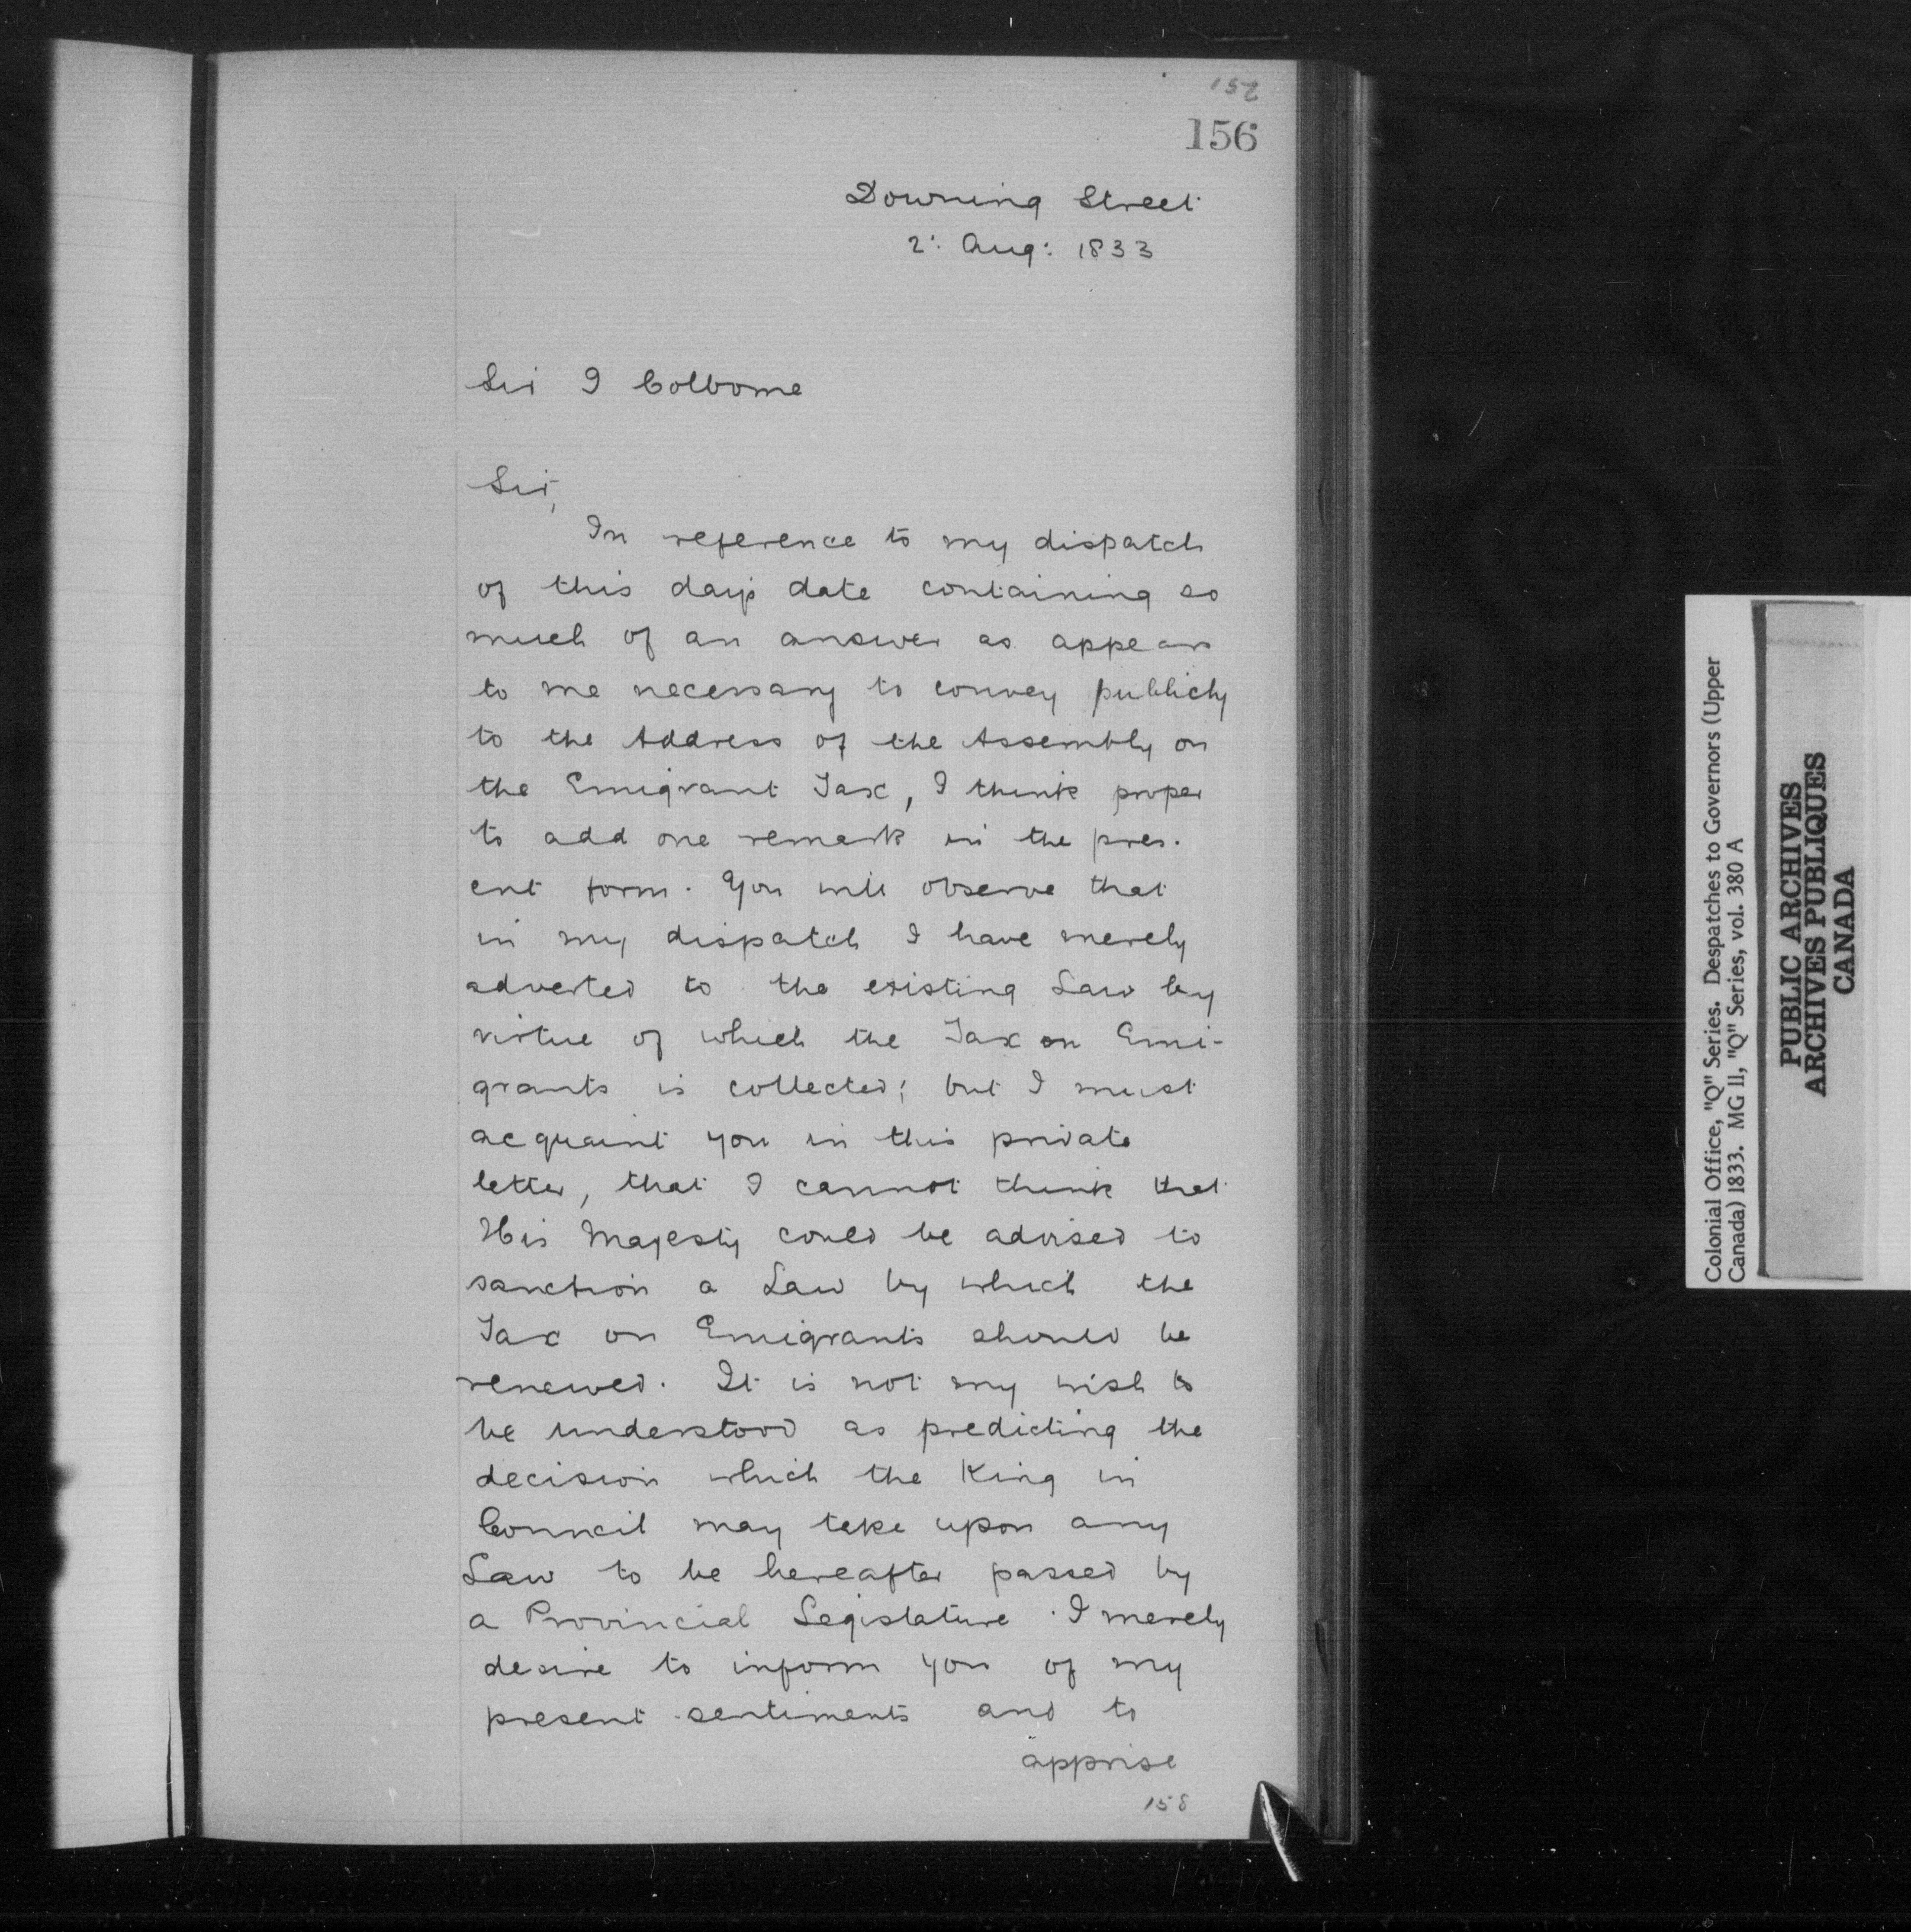 152
156
Downing Street
2: Aug: 1833
Sir J Colborne
Sir,
In reference to my dispatch
of this day's date containing so
much of an answer as appears
to me necessary to convey publicly
to the Address of the Assembly on
the Emigrant Tax, I think proper
to add one remark in the pres-
ent form. You will observe that
in my dispatch I have merely
adverted to the existing Law by
virtue of which the Tax on Emi-
grants is collected; but I must
acquaint you in this private
letter, that I cannot think that
His Majesty could be advised to
sanction a Law by which the
Tax on Emigrants should be
renewed. It is not my wish to
be understood as predicting the
decision which the King in
Council may take upon any
Law to be hereafter passed by
a Provincial Legislature. I merely
desire to inform you of my
present sentiments and to
apprise
158
Colonial Office, "Q" Series. Despatches to Governors (Upper
Canada) 1833. MG 11, "Q" Series, vol. 380 A
PUBLIC ARCHIVES
ARCHIVES PUBLIQUES
CANADA